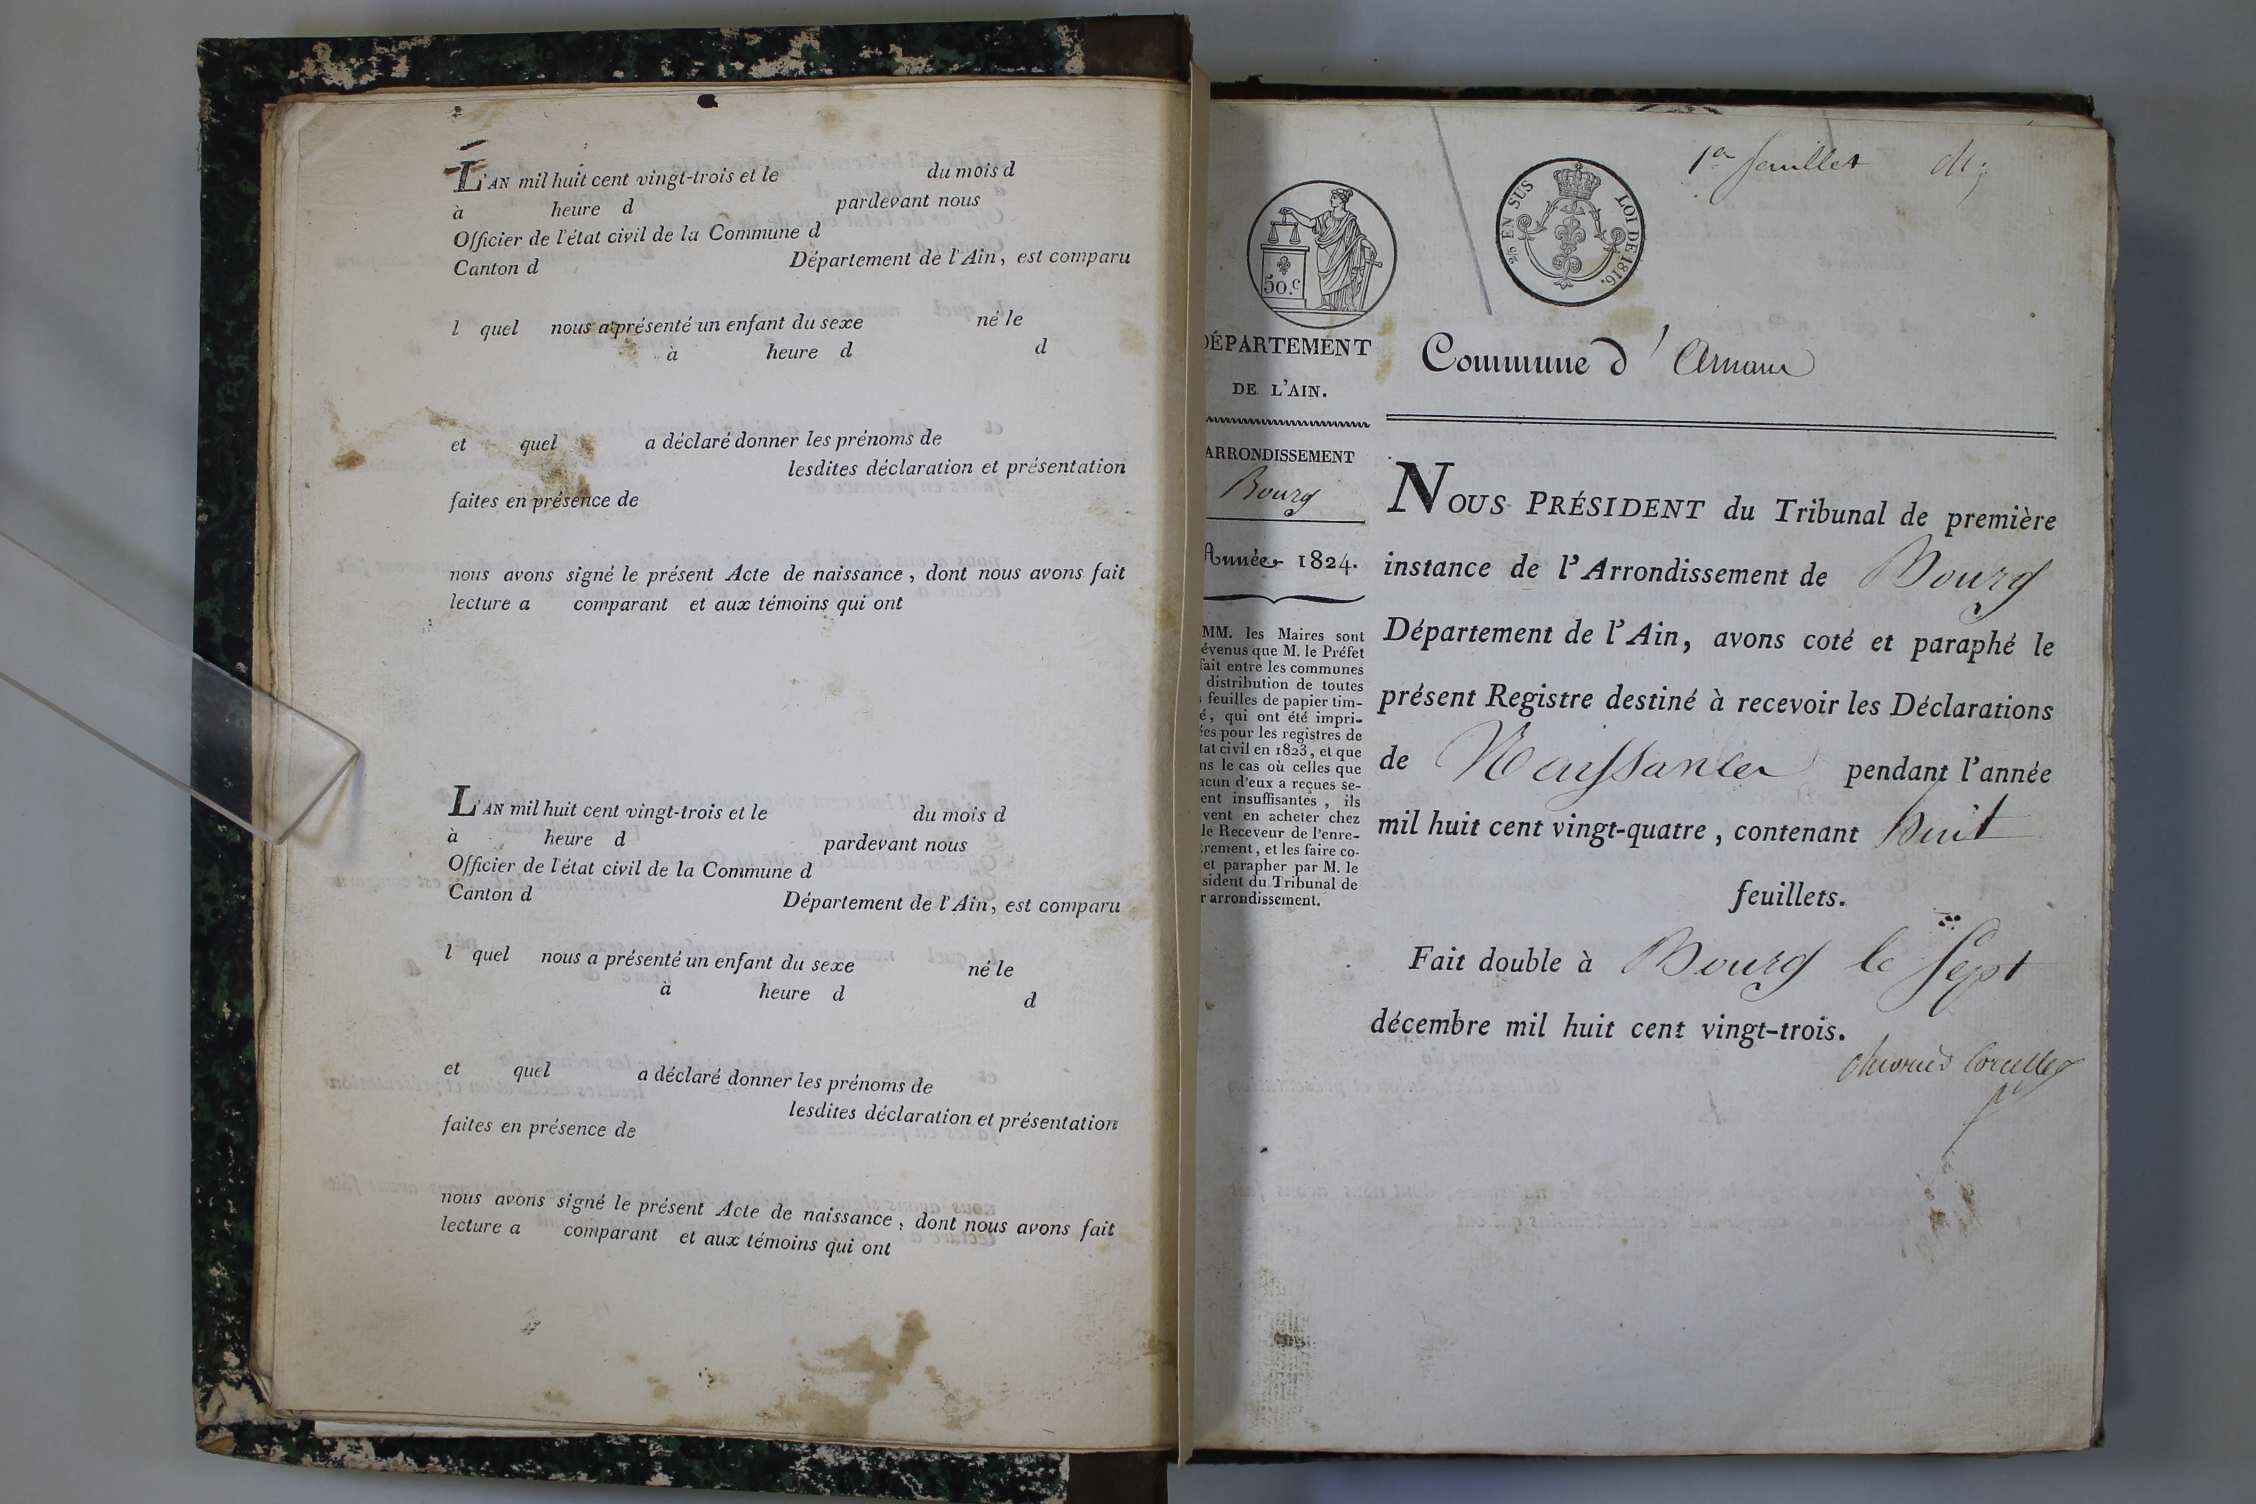 L'AN mil huit cent vingt-trois et le du mois d
à heure d pardevant nous
Officier de l'état civil de la Commune d
Canton d Département de l'Ain, est comparu
l quel nous a présenté un enfant du sexe né le
à heure d d
et quel a déclaré donner les prénoms de
lesdites déclaration et présentation
faites en présence de
nous avons signé le présent Acte de naissance, dont nous avons fait
lecture a comparant et aux témoins qui ont
L'AN mil huit cent vingt-trois et le du mois d
à heure d pardevant nous
Officier de l'état civil de la Commune d
Canton d Département de l'Ain, est comparu
l quel nous a présenté un enfant du sexe né le
à heure d d
et quel a déclaré donner les prénoms de
lesdites déclaration et présentation
faites en présence de
nous avons signé le présent Acte de naissance, dont nous avons fait
lecture a comparant et aux témoins qui ont
1er feuillet
50.c
2/5 EN SUS LOI DE 1816.
DÉPARTEMENT
DE L'AIN.
ARRONDISSEMENT
Bourg
Année 1824.
MM. les Maires sont
évenus que M. le Préfet
fait entre les communes
distribution de toutes
s feuilles de papier tim-
é, qui ont été impri-
ées pour les registres de
tat civil en 1823, et que
ns le cas où celles que
acun d'eux a reçues se-
ent insuffisantes, ils
vent en acheter chez
le Receveur de l'enre-
trement, et les faire co-
et parapher par M. le
sident du Tribunal de
r arrondissement.
Commune d'
NOUS PRÉSIDENT du Tribunal de première
instance de l'Arrondissement de Bourg
Département de l'Ain, avons coté et paraphé le
présent Registre destiné à recevoir les Déclarations
de Naissances pendant l'année
mil huit cent vingt-quatre, contenant huit
feuillets.
Fait double à Bourg le Sept
décembre mil huit cent vingt-trois.